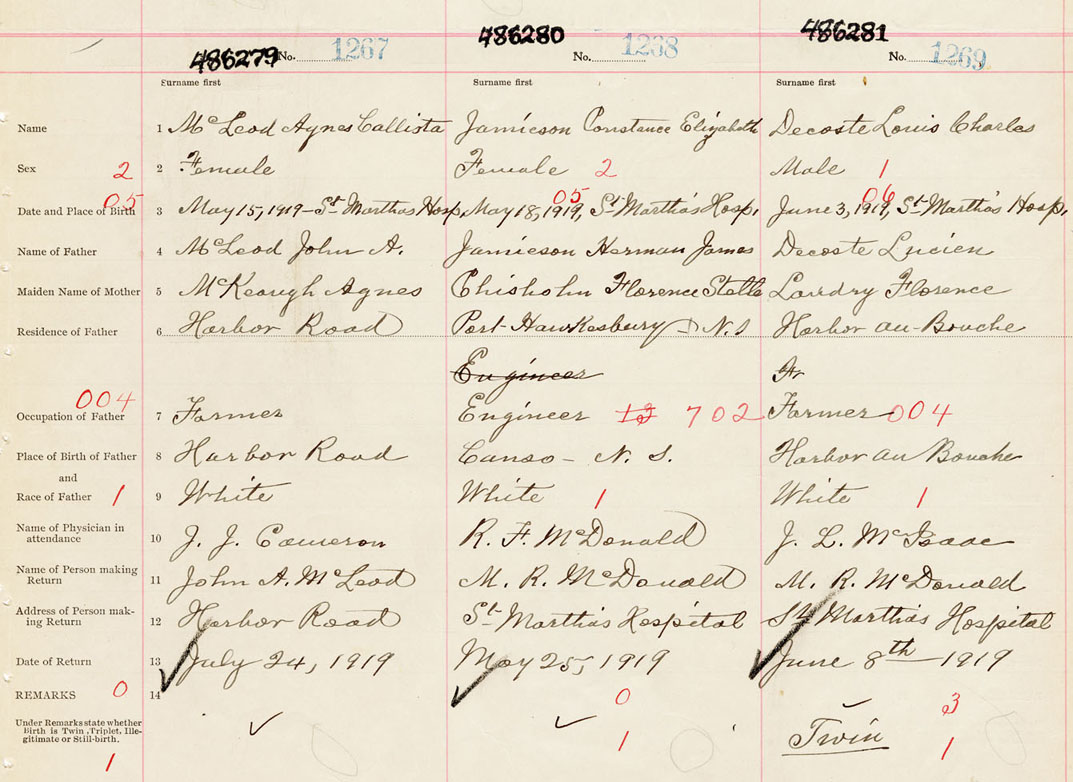 486279 486280 486281
No. 1267 No. 1268 No. 1269
Surname first Surname first Surname first
Name 1 McLeod Agnes Callista Jamieson Constance Elizabeth Decoste Louis Charles
Sex 2 2 Female Female 2 Male 1
05 05 06
Date and Place of Birth 3 May 15, 1919 - St. Marthas Hosp. May 18, 1919, St. Martha's Hosp. June 3, 1919, St. Martha's Hosp.
Name of Father 4 McLeod John A. Jamieson Herman James Decoste Lucien
Maiden Name of Mother 5 McKeough Agnes Chisholm Florence Stella Landry Florence
Residence of Father 6 Harbor Road Port Hawkesbury N.S Harbor au-Bouche
Engineer Fr
004
Occupation of Father 7 Farmer Engineer 13 702 Farmer 004
Place of Birth of Father 8 Harbor Road Canso - N. S. Harbor au Bouche
and
Race of Father 1 9 White White 1 White 1
Name of Physician in
attendance 10 J. J. Cameron R. F. McDonald J. L. McIsaac
Name of Person making
Return 11 John A. McLeod M. R. McDonald M. R. McDonald
Address of Person mak-
ing Return 12 Harbor Road St. Martha's Hospital St. Martha's Hospital
Date of Return 13 July 24, 1919 May 25, 1919 June 8th - 1919
REMARKS 0 14 0 3
Under Remarks state whether
Birth is Twin, Triplet, Ille-
gitimate or Still-birth.
Twin
1 1 1